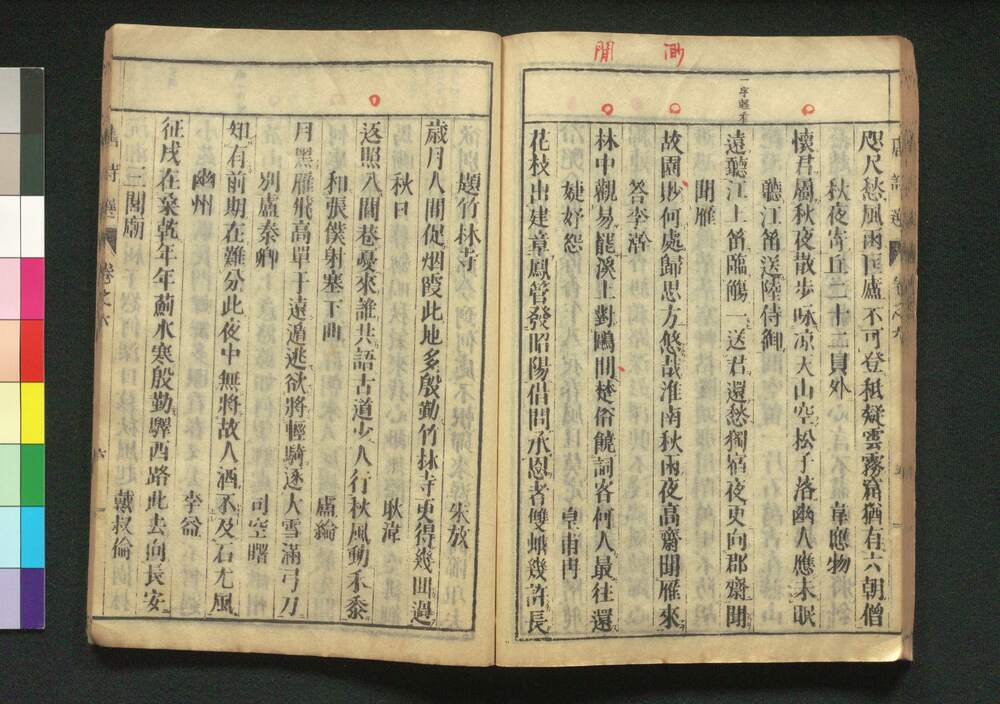 渺
閒
一字輕重
咫尺愁風雨匡廬不可登秪疑雲霧窟猶有六朝僧
秋夜寄丘二十二員外 韋應物
懷君屬秋夜散步咏凉天山空松子落幽人應未眠
聽江笛送陸侍御
遠聽江上笛臨觴一送君還愁獨宿夜更向郡齋聞
聞雁
故園眇何處歸思方悠哉淮南秋雨夜高齋聞雁來
答李澣
林中觀易罷溪上對鷗閒楚俗饒詞客何人最往還
婕妤怨 皇甫冉
花枝出建章鳳管發昭陽借問承恩者雙蛾幾許長
題竹林寺 朱放
歲月人間促烟霞此地多殷勤竹林寺更得幾回過
秋日 耿湋
返照入閭巷憂來誰共語古道少人行秋風動禾黍
和張僕射塞下曲 盧綸
月黑雁飛高單于遠遁逃欲將輕騎逐大雪滿弓刀
別盧秦卿 司空曙
知有前期在難分此夜中無將故人酒不及石尤風
幽州 李益
征戍在桑乾年年薊水寒殷勤驛西路此去向長安
三閭廟 戴叔倫
唐詩選 卷之六 六